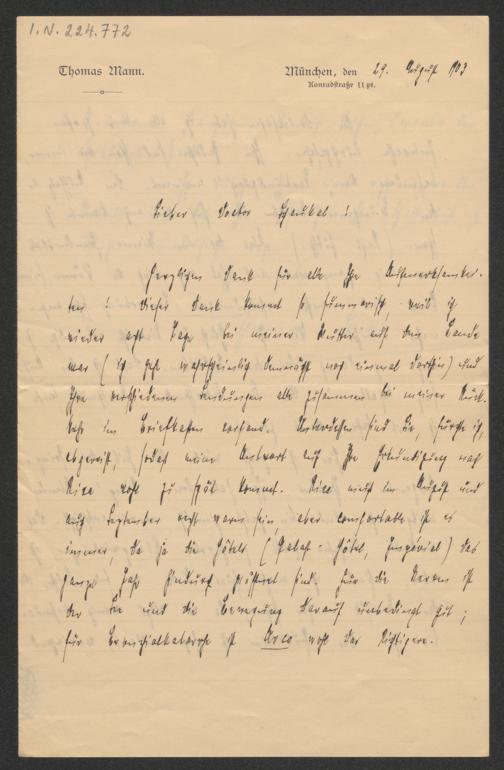 I.N. 224.772
Thomas Mann.
München, den 29. August 1903
Konradstraße 11 pt.
Lieber Doctor Schaukal!
Herzlichen Dank für alle Ihre Aufmerksamkei-
ten! Dieser Dank kommt so summarisch, weil ich
wieder acht Tage bei meiner Mutter auf dem Lande
war (ich gehe wahrscheinlich demnächst noch einmal dorthin) und
Ihre verschiedenen Sendungen alle zusammen bei meiner Rück-
kehr im Briefkasten vorfand. Unterdessen sind Sie, fürchte ich,
abgereist, sodaß meine Antwort auf Ihre Erkundigung nach
Riva wohl zu spät kommt. Riva muß im August und
auch September recht warm sein, aber comfortable ist es
immer, da ja die Hôtels (Palast-Hôtel, Impérial) das
ganze Jahr hindurch geöffnet sind. Für die Nerven ist
der See und die Bewegung darauf unbedingt gut;
für Bronchialkatarrhe ist Arco wohl das Richtigere.